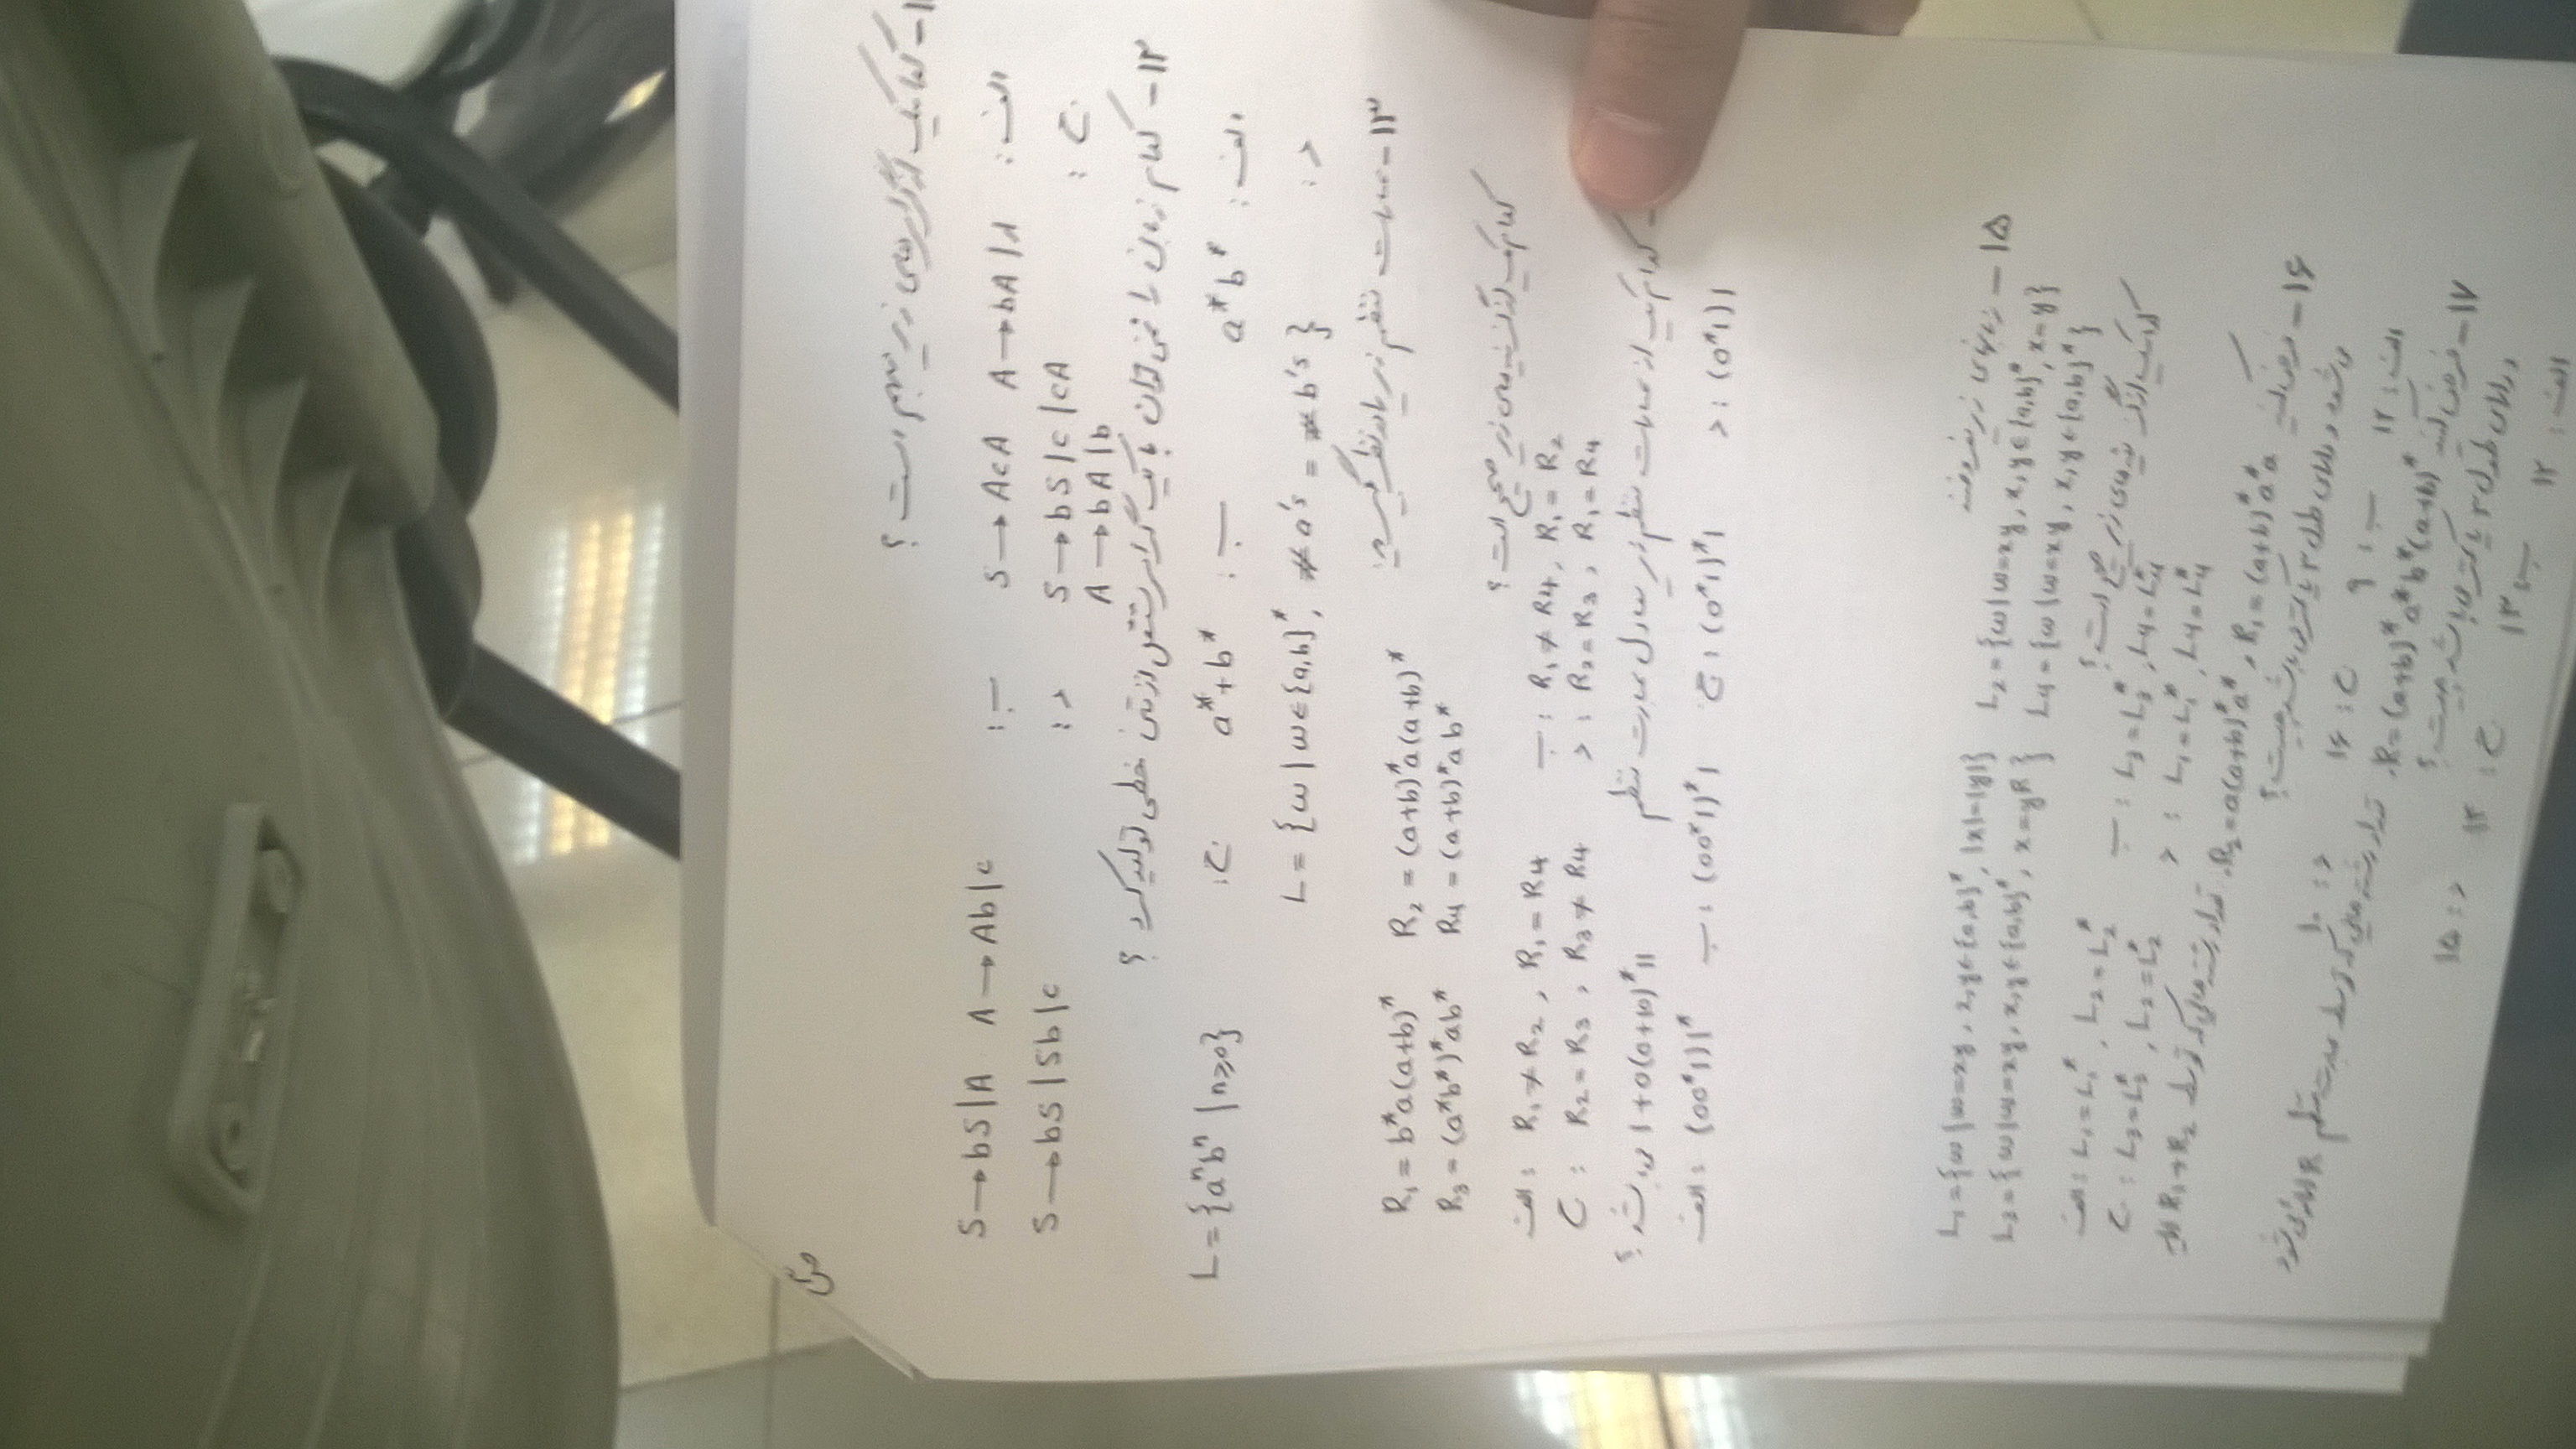 ص۲
۱- کدامیک از گرامرهای زیر مبهم است ؟
الف : S → AcA A → bA | λ ب : S → bS | A A → Ab | c
ج : S → bS | c | cA د : S → bS | Sb | c
A → bA | b
۱۲- کدام زبان را نمی توان با یک گرامر مستقل از متن خطی تولید کرد ؟
الف : a*b* ب : a*+b* ج : L = {aⁿbⁿ | n≥0}
د : L = {ω | ω∈{a,b}*, #a's = #b's}
۱۳- عبارات منظم زیر را در نظر بگیرید :
R₁ = b*a(a+b)* R₂ = (a+b)*a(a+b)*
R₃ = (a*b*)*ab* R₄ = (a+b)*ab*
کدام یک از گزینه های زیر صحیح است ؟
الف : R₁ ≠ R₂ , R₁ = R₄ ب : R₁ ≠ R₄, R₁ = R₂
ج : R₂ = R₃ , R₃ ≠ R₄ د : R₂ = R₃ , R₁ = R₄
- کدام یک از عبارات منظم زیر معادل عبارت منظم 1+0(0+10)*11 می باشد ؟
الف : (00*1)1* ب : (00*1)*1 ج : (0*1)*1 د : (0*1)1
۱۵- زبانهای زیر مفروضند
L₁ = {ω | ω=xy , x,y∈{a,b}*, |x|=|y|} L₂ = {ω | ω=xy, x,y∈{a,b}*, x=y}
L₃ = {ω | ω=xy, x,y∈{a,b}*, x=yR} L₄ = {ω | ω=xy, x,y∈{a,b}*}
کدامیک از گزینه های زیر صحیح است ؟
الف : L₁=L₁* , L₂=L₂* ب : L₃=L₃* , L₄=L₄*
ج : L₃=L₃* , L₂=L₂* د : L₁=L₁* , L₄=L₄*
۱۶- فرض کنید R₁=(a+b)*a*a , R₂=a(a+b)*a* . تعداد رشته هایی که توسط R₁+R₂
می شود و دارای طول ۳ یا کمتر می باشد چیست ؟
الف : ۱۲ ب : ۹ ج : ۱۶ د : ۱۰
۱۷- فرض کنید R=(a+b)*a*b*(a+b)* . تعداد رشته هایی که توسط عبارت منظم R می شود
و دارای طول ۳ یا کمتر می باشد چیست ؟
الف : ۱۲ ب : ۱۳ ج : ۱۴ د : ۱۵